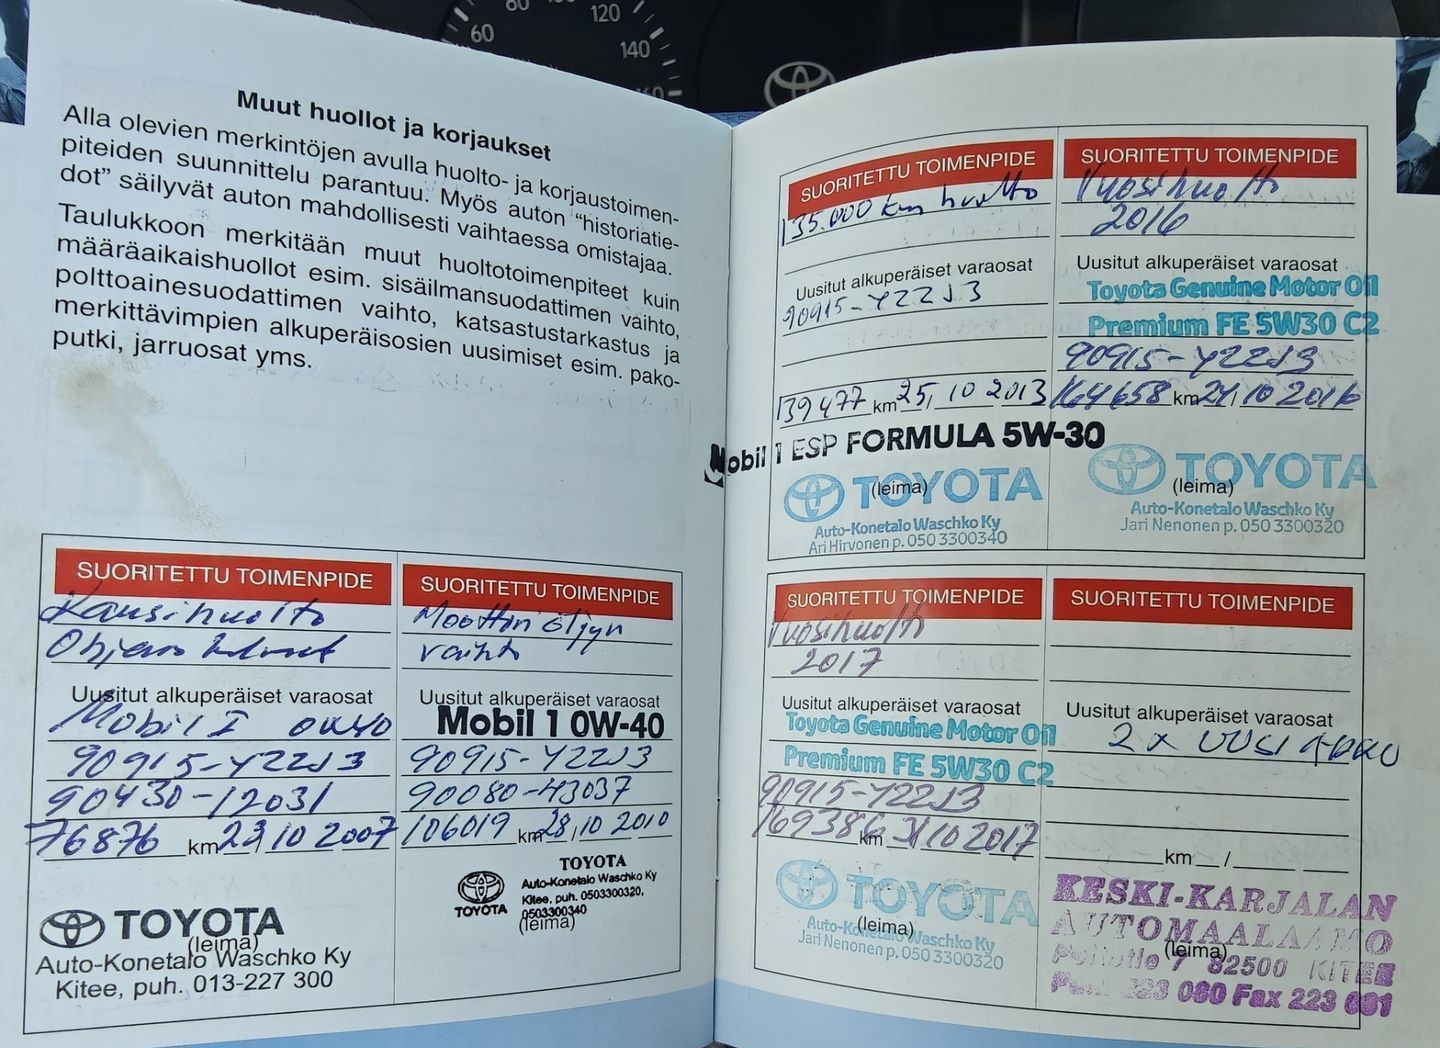 60
80
120
140
160
Muut huollot ja korjaukset
Alla olevien merkintöjen avulla huolto- ja korjaustoimen-
piteiden suunnittelu parantuu. Myös auton “historiatie-
dot” säilyvät auton mahdollisesti vaihtaessa omistajaa.
Taulukkoon merkitään muut huoltotoimenpiteet kuin
määräaikaishuollot esim. sisäilmansuodattimen vaihto,
polttoainesuodattimen vaihto, katsastustarkastus ja
merkittävimpien alkuperäisosien uusimiset esim. pako-
putki, jarruosat yms.
SUORITETTU TOIMENPIDE
Kausihuolto
Uusitut alkuperäiset varaosat
Mobil I 0W40
90915-YZZJ3
90430-12031
76876 km 23/10 2007
TOYOTA
(leima)
Auto-Konetalo Waschko Ky
Kitee, puh. 013-227 300
SUORITETTU TOIMENPIDE
Moottoriöljyn
vaihto
Uusitut alkuperäiset varaosat
Mobil 1 0W-40
90915-YZZJ3
90080-43037
106019 km 28/10 2010
TOYOTA
TOYOTA
Auto-Konetalo Waschko Ky
Kitee, puh. 0503300320,
0503300340
(leima)
SUORITETTU TOIMENPIDE
135.000 km huolto
Uusitut alkuperäiset varaosat
90915-YZZJ3
139477 km 25/10 2013
Mobil 1 ESP FORMULA 5W-30
TOYOTA
(leima)
Auto-Konetalo Waschko Ky
Ari Hirvonen p. 050 3300340
SUORITETTU TOIMENPIDE
Vuosihuolto
2016
Uusitut alkuperäiset varaosat
Toyota Genuine Motor Oil
Premium FE 5W30 C2
90915-YZZJ3
164658 km 24/10 2016
TOYOTA
(leima)
Auto-Konetalo Waschko Ky
Jari Nenonen p. 050 3300320
SUORITETTU TOIMENPIDE
Vuosihuolto
2017
Uusitut alkuperäiset varaosat
Toyota Genuine Motor Oil
Premium FE 5W30 C2
90915-YZZJ3
169386 km 31/10 2017
TOYOTA
(leima)
Auto-Konetalo Waschko Ky
Jari Nenonen p. 050 3300320
SUORITETTU TOIMENPIDE
Uusitut alkuperäiset varaosat
2 x UUSI
km /
KESKI-KARJALAN
AUTOMAALAAMO
(leima)
7 82500 KITEE
Puh. 223 080 Fax 223 081